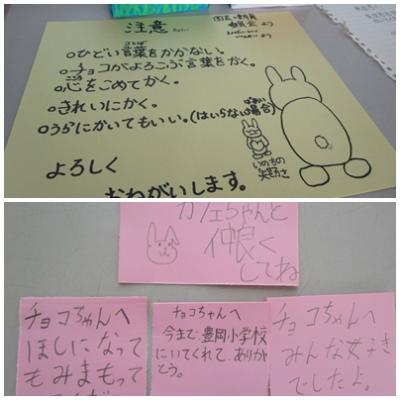 注意
○ひどい言葉をかかない。
○チョコがよろこぶ言葉をかく。
○心をこめてかく。
○きれいにかく。
○うらにかいてもいい。(はいらない場合)
よろしく
おねがいします。
カフェちゃんと
仲良く
してね
チョコちゃんへ
ほしになって
もみまもって
チョコちゃんへ
今まで、豊岡小学校
にいてくれて、ありが
とう。
チョコちゃんへ
みんな大好き
でしたよ。